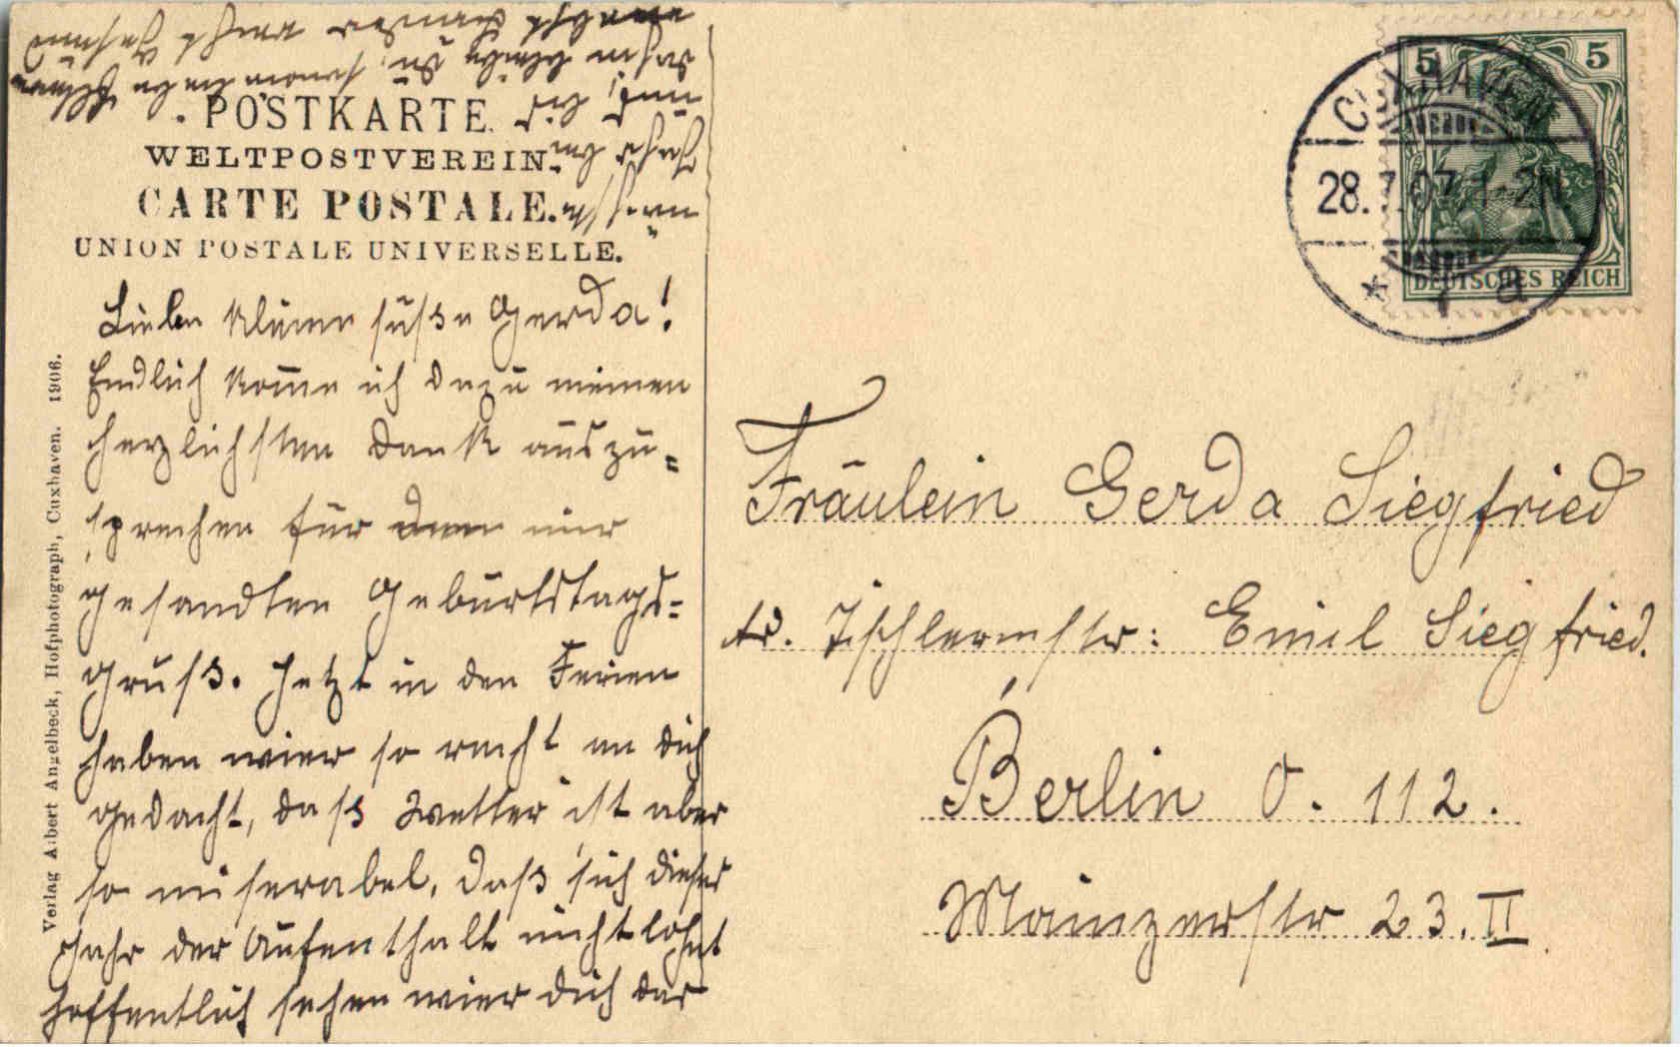 POSTKARTE.
WELTPOSTVEREIN.
CARTE POSTALE.
UNION POSTALE UNIVERSELLE.
Liebe kleine süße Gerda!
Endlich komme ich dazu meinen
herzlichsten Dank auszu=
sprechen für den mir
gesandten Geburtstags=
gruß. Jetzt in den Ferien
haben wier so recht an dich
gedacht, daß Wetter ist aber
so miserabel, daß sich dieses
Jahr der Aufenthalt nicht lohnt
hoffentlich sehen wier dich das
nächste Jahr
und
Verlag Albert Angelbeck, Hofphotograph, Cuxhaven. 1906.
5 5
DEUTSCHES REICH
CUXHAVEN
28.7.07. 1-2N.
* 1 a
Fräulein Gerda Siegfried
Ad. Tischlermstr: Emil Siegfried.
Berlin O. 112.
Mainzerstr 23. II